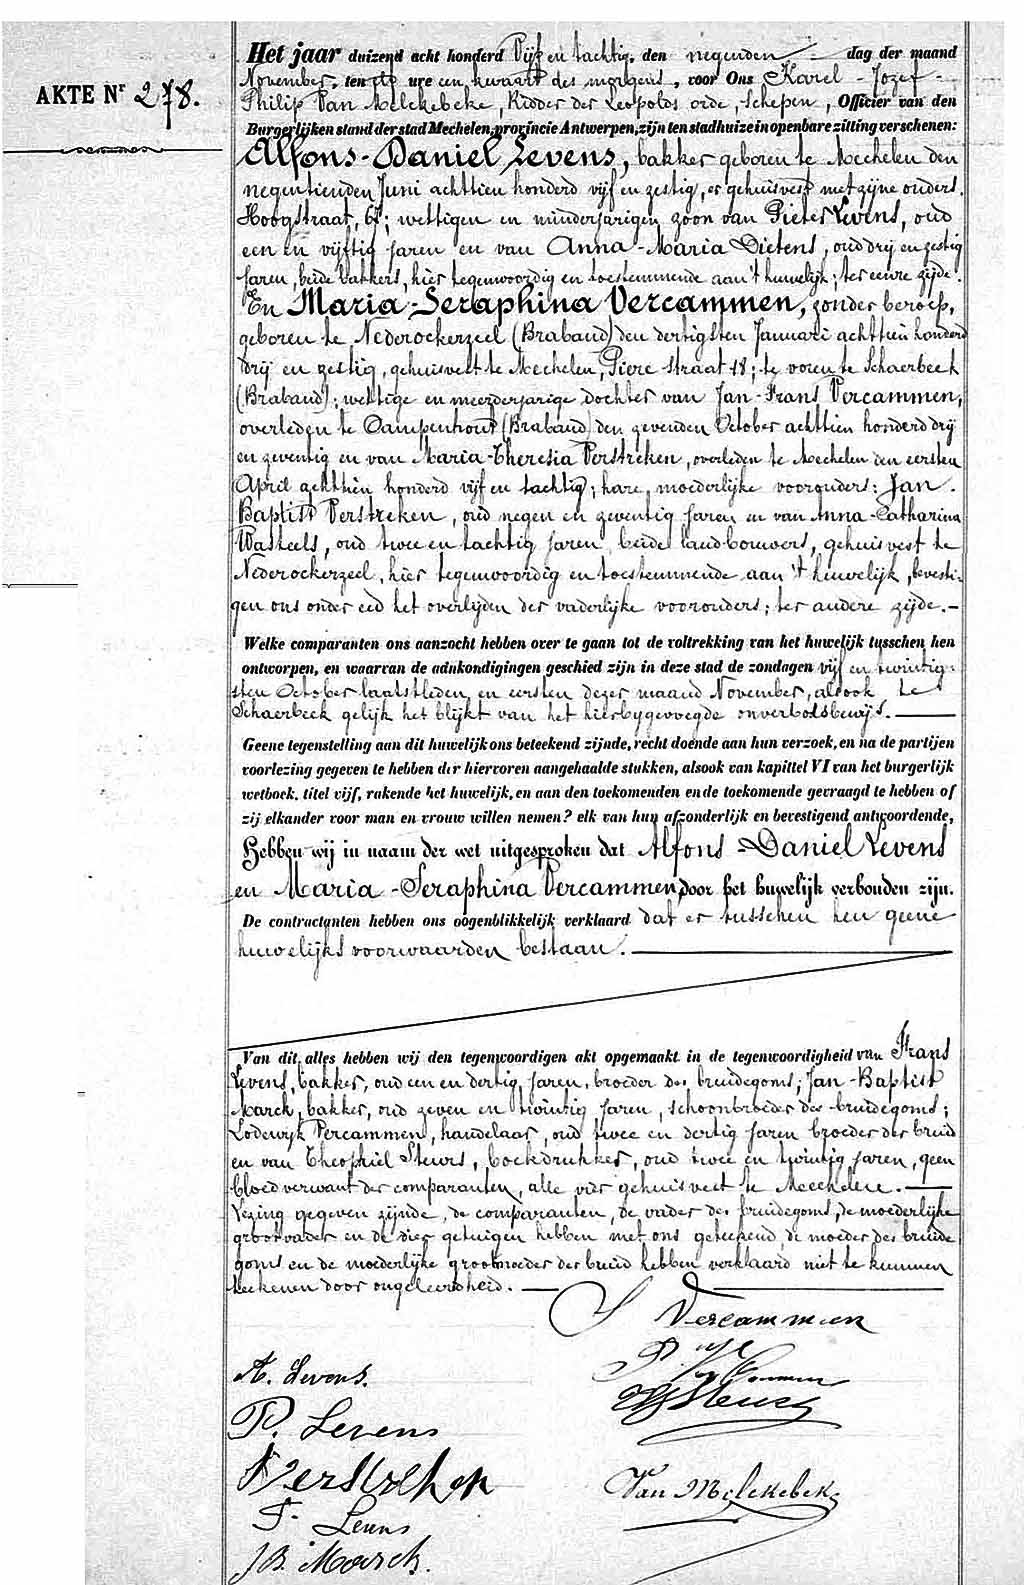 AKTE Nr 278.
Het jaar duizend acht honderd Vijf en tachtig, den negenden dag der maand
November, ten elf ure een kwaart des morgens, voor Ons Karel - Jozef -
Philip Van Melckebeke, Ridder der Leopolds orde, Schepen, Officier van den
Burgerlijken stand der stad Mechelen, provincie Antwerpen, zijn ten stadhuize in openbare zitting verschenen:
Alfons-Daniel Levens, bakker geboren te Mechelen den
negentienden Juni achttien honderd vijf en zestig, er gehuisvest met zijne ouders.
Hoogstraat, 61; wettigen en minderjarigen zoon van Pieter Levens, oud
een en vijftig jaren en van Anna-Maria Dietens, oud drij en zestig
jaren, beide bakkers, hier tegenwoordig en toestemmende aan 't huwelijk; ter eenre zijde.
En Maria-Seraphina Vercammen, zonder beroep,
geboren te Nederockerzeel (Braband) den dertigsten Januari achttien honderd
drij en zestig, gehuisvest te Mechelen, Piere straat 18; te voren te Schaerbeek
(Braband); wettige en meerderjarige dochter van Jan-Frans Vercammen,
overleden te Campenhout (Braband) den zevenden October achttien honderd drij
en zeventig en van Maria-Theresia Verstreken, overleden te Mechelen den eersten
April achttien honderd vijf en tachtig; hare moederlijke voorouders: Jan.
Baptist Verstreken, oud negen en zeventig jaren en van Anna-Catharina
Wasteels, oud twee en tachtig jaren, beide landbouwers, gehuisvest te
Nederockerzeel, hier tegenwoordig en toestemmende aan 't huwelijk, bevesti-
gen ons onder eed het overlijden der vaderlijke voorouders; ter andere zijde.-
Welke comparanten ons aanzocht hebben over te gaan tot de voltrekking van het huwelijk tusschen hen
ontworpen, en waarvan de aankondigingen geschied zijn in deze stad de zondagen vijf en twintig-
sten October laatstleden en eersten dezer maand November, alsook te
Schaerbeek gelijk het blijkt van het hierbygevoegde onverbodsbewijs.
Geene tegenstelling aan dit huwelijk ons beteekend zijnde, recht doende aan hun verzoek, en na de partijen
voorlezing gegeven te hebben der hiervoren aangehaalde stukken, alsook van kapittel VI van het burgerlijk
wetboek, titel vijf, rakende het huwelijk, en aan den toekomenden en de toekomende gevraagd te hebben of
zij elkander voor man en vrouw willen nemen? elk van hun afzonderlijk en bevestigend antwoordende,
Hebben wij in naam der wet uitgesproken dat Alfons-Daniel Levens
en Maria-Seraphina Vercammen, door het huwelijk verbonden zijn.
De contractanten hebben ons oogenblikkelijk verklaard dat er tusschen hen geene
huwelijksvoorwaarden bestaan.
Van dit alles hebben wij den tegenwoordigen akt opgemaakt in de tegenwoordigheid van Frans
Levens, bakker, oud een en dertig jaren, broeder des bruidegoms; Jan-Baptist
Marck, bakker, oud zeven en twintig jaren, schoonbroeder des bruidegoms;
Lodewijk Vercammen, handelaar, oud twee en dertig jaren broeder der bruid
en van Theophiel Steurs, boekdrukker, oud twee en twintig jaren, geen
bloedverwant der comparanten, alle vier gehuisvest te Mechelen.
Lezing gegeven zijnde, de comparanten, de vader des bruidegoms, de moederlijke
grootvader en de vier getuigen hebben met ons geteekend, de moeder des bruide
goms en de moederlijke grootmoeder der bruid hebben verklaard niet te kunnen
teekenen door ongeleerdheid.
S Vercammen
A. Levens.
P. Levens
Verstreken
Van Melckebeke
F. Levens
JB. Marck.